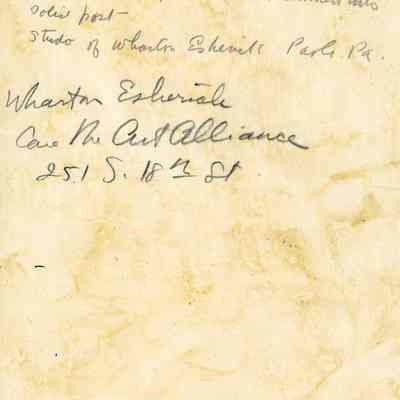 into
solid post
Studo of Wharton Esherick Paoli Pa.
Wharton Esherick
Care The Art Alliance
251 S. 18th St.